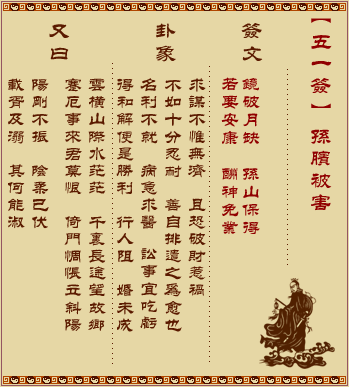 【五一簽】 孫臏被害
簽文
鏡破月缺 孫山保得
若要安康 酬神免業
卦象
求謀不惟無濟 且恐破財惹禍
不如十分忍耐 善自排遣之爲愈也
名利不就 病急求醫 訟事宜吃虧
得和解便是勝利 行人阻 婚未成
又曰
雲橫山際水茫茫 千裏長途望故鄉
蹇厄事來君莫恨 倚門惆悵立斜陽
陽剛不振 陰柔已伏
載胥及溺 其何能淑